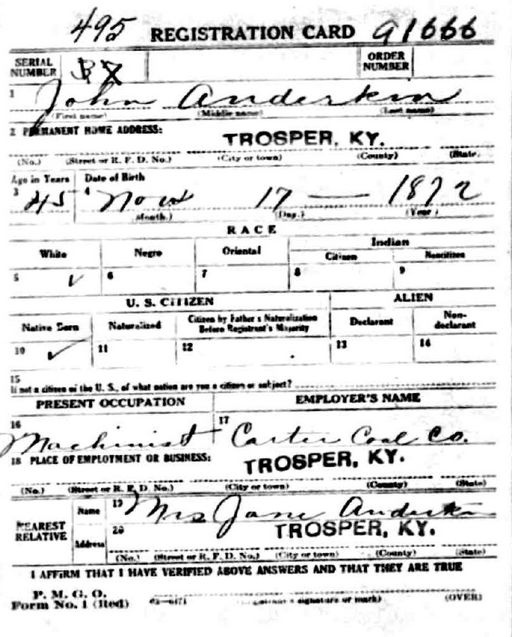 495 REGISTRATION CARD 91666
SERIAL NUMBER ORDER NUMBER
1 John Anderkin
(First name) (Middle name) (Last name)
2 PERMANENT HOME ADDRESS:
TROSPER, KY.
(No.) (Street or R. F. D. No.) (City or town) (County) (State)
Age in Years Date of Birth
3 45 4 Nov 17 — 1872
(Month.) (Day.) (Year)
RACE
White Negro Oriental Indian
Citizen Noncitizen
5 ✓ 6 7 8 9
U. S. CITIZEN ALIEN
Native Born Naturalized Citizen by Father's Naturalization Before Registrant's Majority Declarant Non-declarant
10 ✓ 11 12 13 14
15
If not a citizen of the U. S., of what nation are you a citizen or subject?
PRESENT OCCUPATION EMPLOYER'S NAME
16 Machinist 17 Carter Coal Co.
18 PLACE OF EMPLOYMENT OR BUSINESS:
TROSPER, KY.
(No.) (Street or R. F. D. No.) (City or town) (County) (State)
NEAREST RELATIVE
Name 19 Mrs Jane Anderkin
Address 20 TROSPER, KY.
(No.) (Street or R. F. D. No.) (City or town) (County) (State)
I AFFIRM THAT I HAVE VERIFIED ABOVE ANSWERS AND THAT THEY ARE TRUE
P. M. G. O.
Form No. 1 (Red) signature or mark) (OVER)